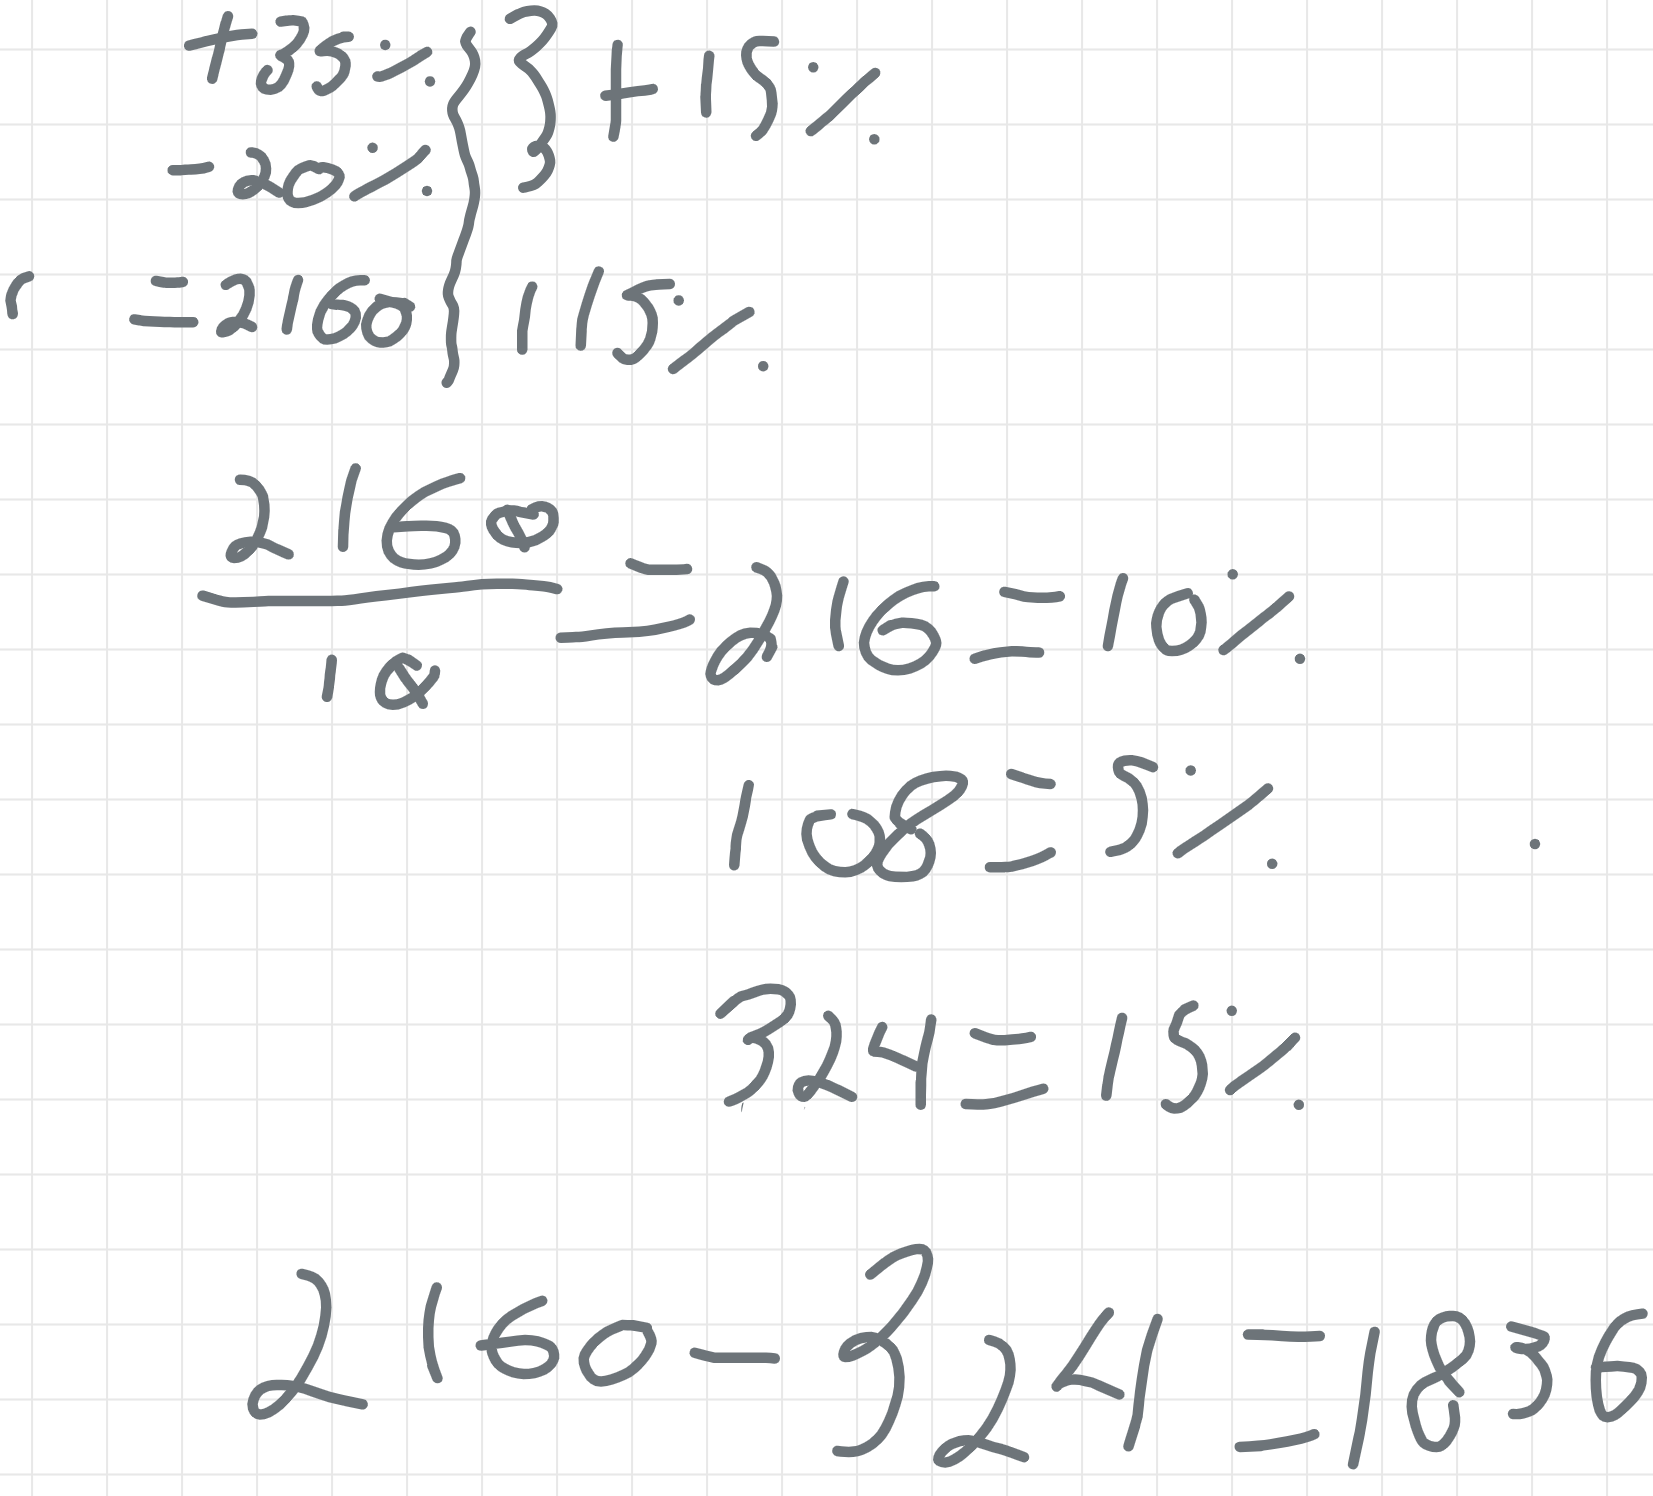 +35% } } +15%
-20%
r =2160 } 115%
2160
10
=216=10%
108=5%
324=15%
2160-324=1836